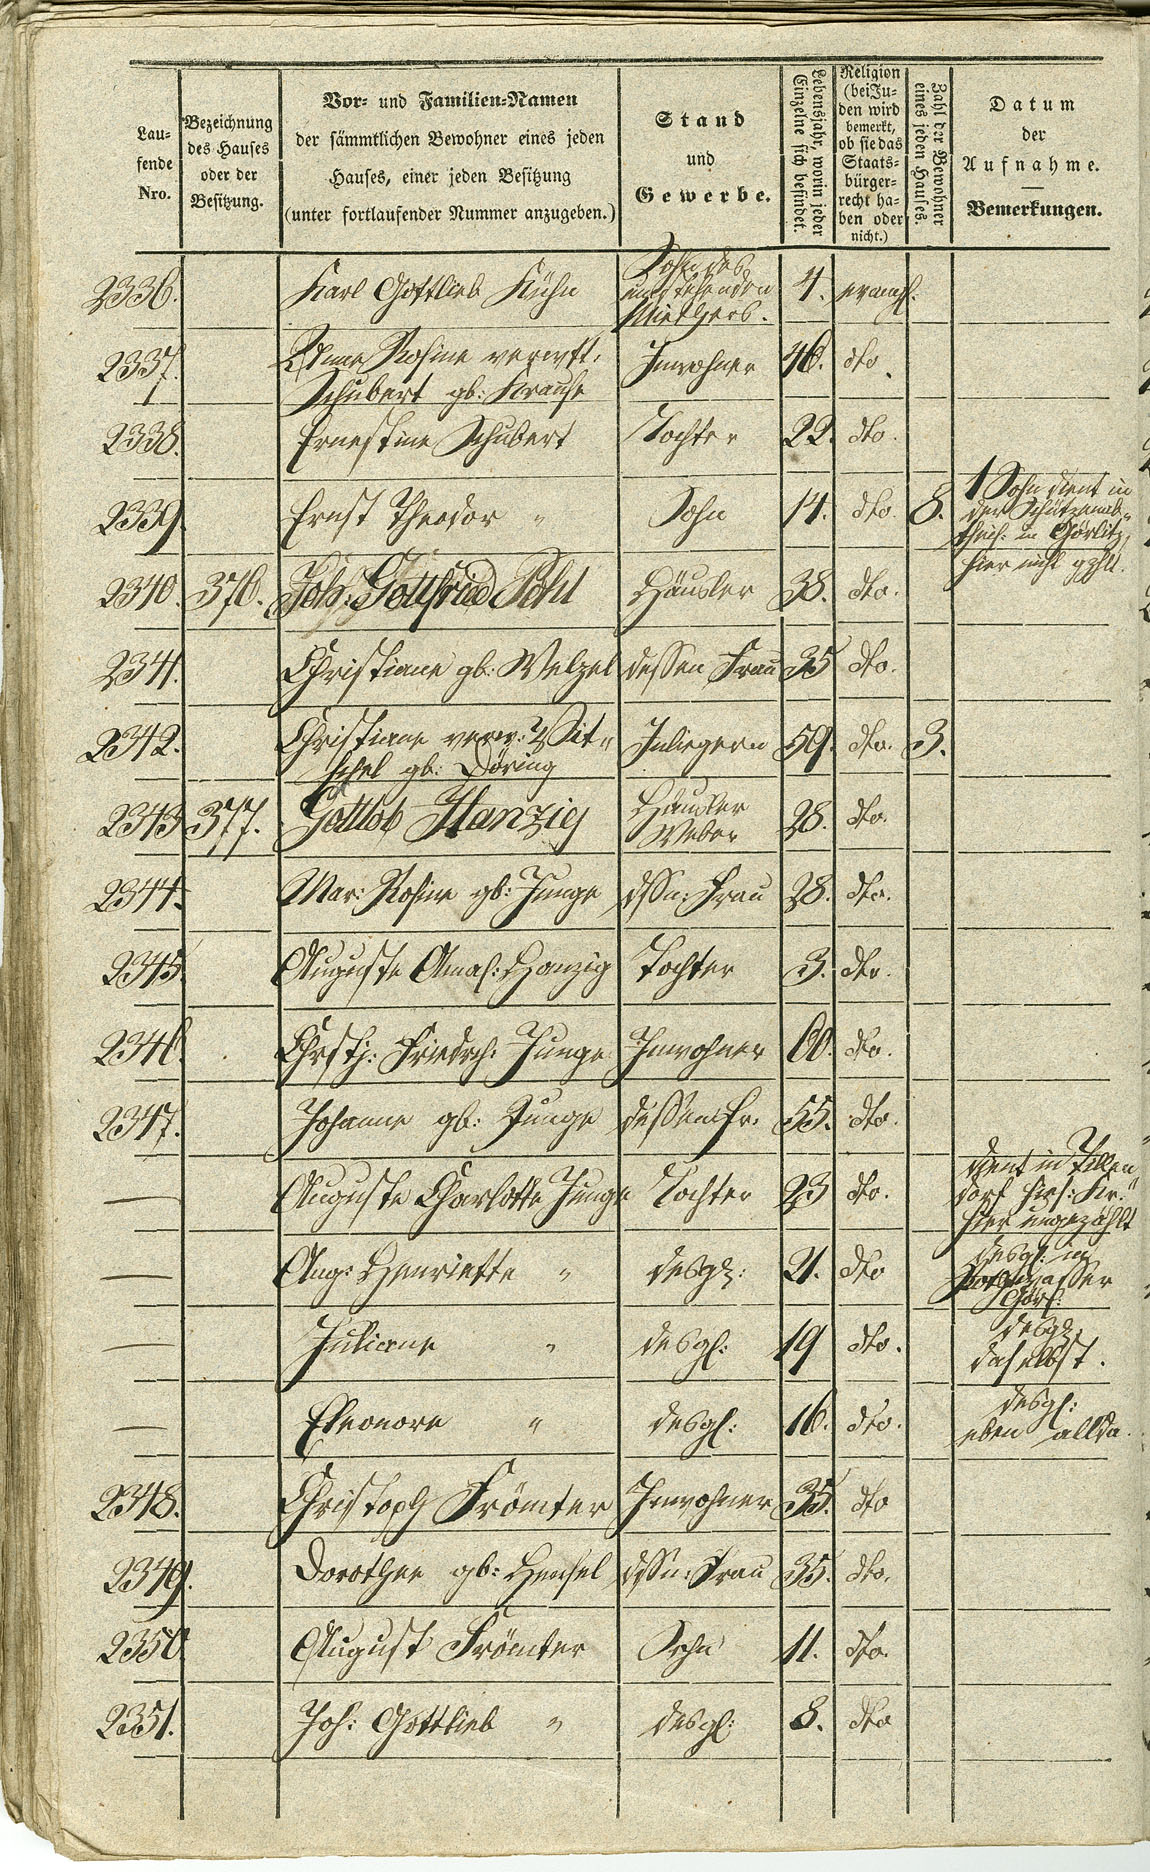 Lau-
fende
Nro.
Bezeichnung
des Hauses
oder der
Besitzung.
Vor- und Familien-Namen
der sämmtlichen Bewohner eines jeden
Hauses, einer jeden Besitzung
(unter fortlaufender Nummer anzugeben.)
Stand
und
Gewerbe.
Lebensjahr, worin jeder
Einzelne sich befindet.
Religion
(bei Ju-
den wird
bemerkt,
ob sie das
Staats-
bürger-
recht ha-
ben oder
nicht.)
Zahl der Bewohner
eines jeden Hauses.
Datum
der
Aufnahme.
Bemerkungen.
Sohn des
2336. Karl Gottlieb Kühn umstehenden 4. evangl.
Miethers.
2337. Anna Rosine verwitt: Inwohner 46. dto.
Schubert gb: Krause
2338. Ernestine Schubert Tochter 22. dto.
2339. Ernst Theodor " Sohn 14. dto. 8. 1 Sohn dient in
der Schützenab-
theil: in Görlitz,
hier nicht gzhlt.
2340. 376. Joh: Gottfried Pohl Häusler 38. dto.
2341. Christiane gb: Welzel dessen Frau 35 dto.
2342. Christiane verw: Wit- Inliegern 59. dto. 3.
schel gb: Döring
2343 377. Gottlob Hanzig Häusler 28. dto.
Weber
2344. Mar: Rosine gb: Junge dssn: Frau 28. dto.
2345 Auguste Amal: Hanzig Tochter 3. dto.
2346. Chrstj: Friedrch: Junge Inwohner 60. dto.
2347. Johanne gb: Junge dessen Fr. 55. dto.
— Auguste Charlotte Junge Tochter 23 dto. dient in Tillen-
dorf hies: Kr:
hier ungezählt
— Aug: Henriette " desgl: 21. dto desgl: in
— Juliane " desgl: 19 dto. desgl:
daselbst.
— Eleonore " desgl: 16. dto. desgl:
eben allda.
2348. Christoph Frömter Inwohner 35. dto
2349. Dorothee gb: Hensel dssn: Frau 35. dto.
2350 August Frömter Sohn 11. dto.
2351. Joh: Gottlieb " desgl: 8. dto